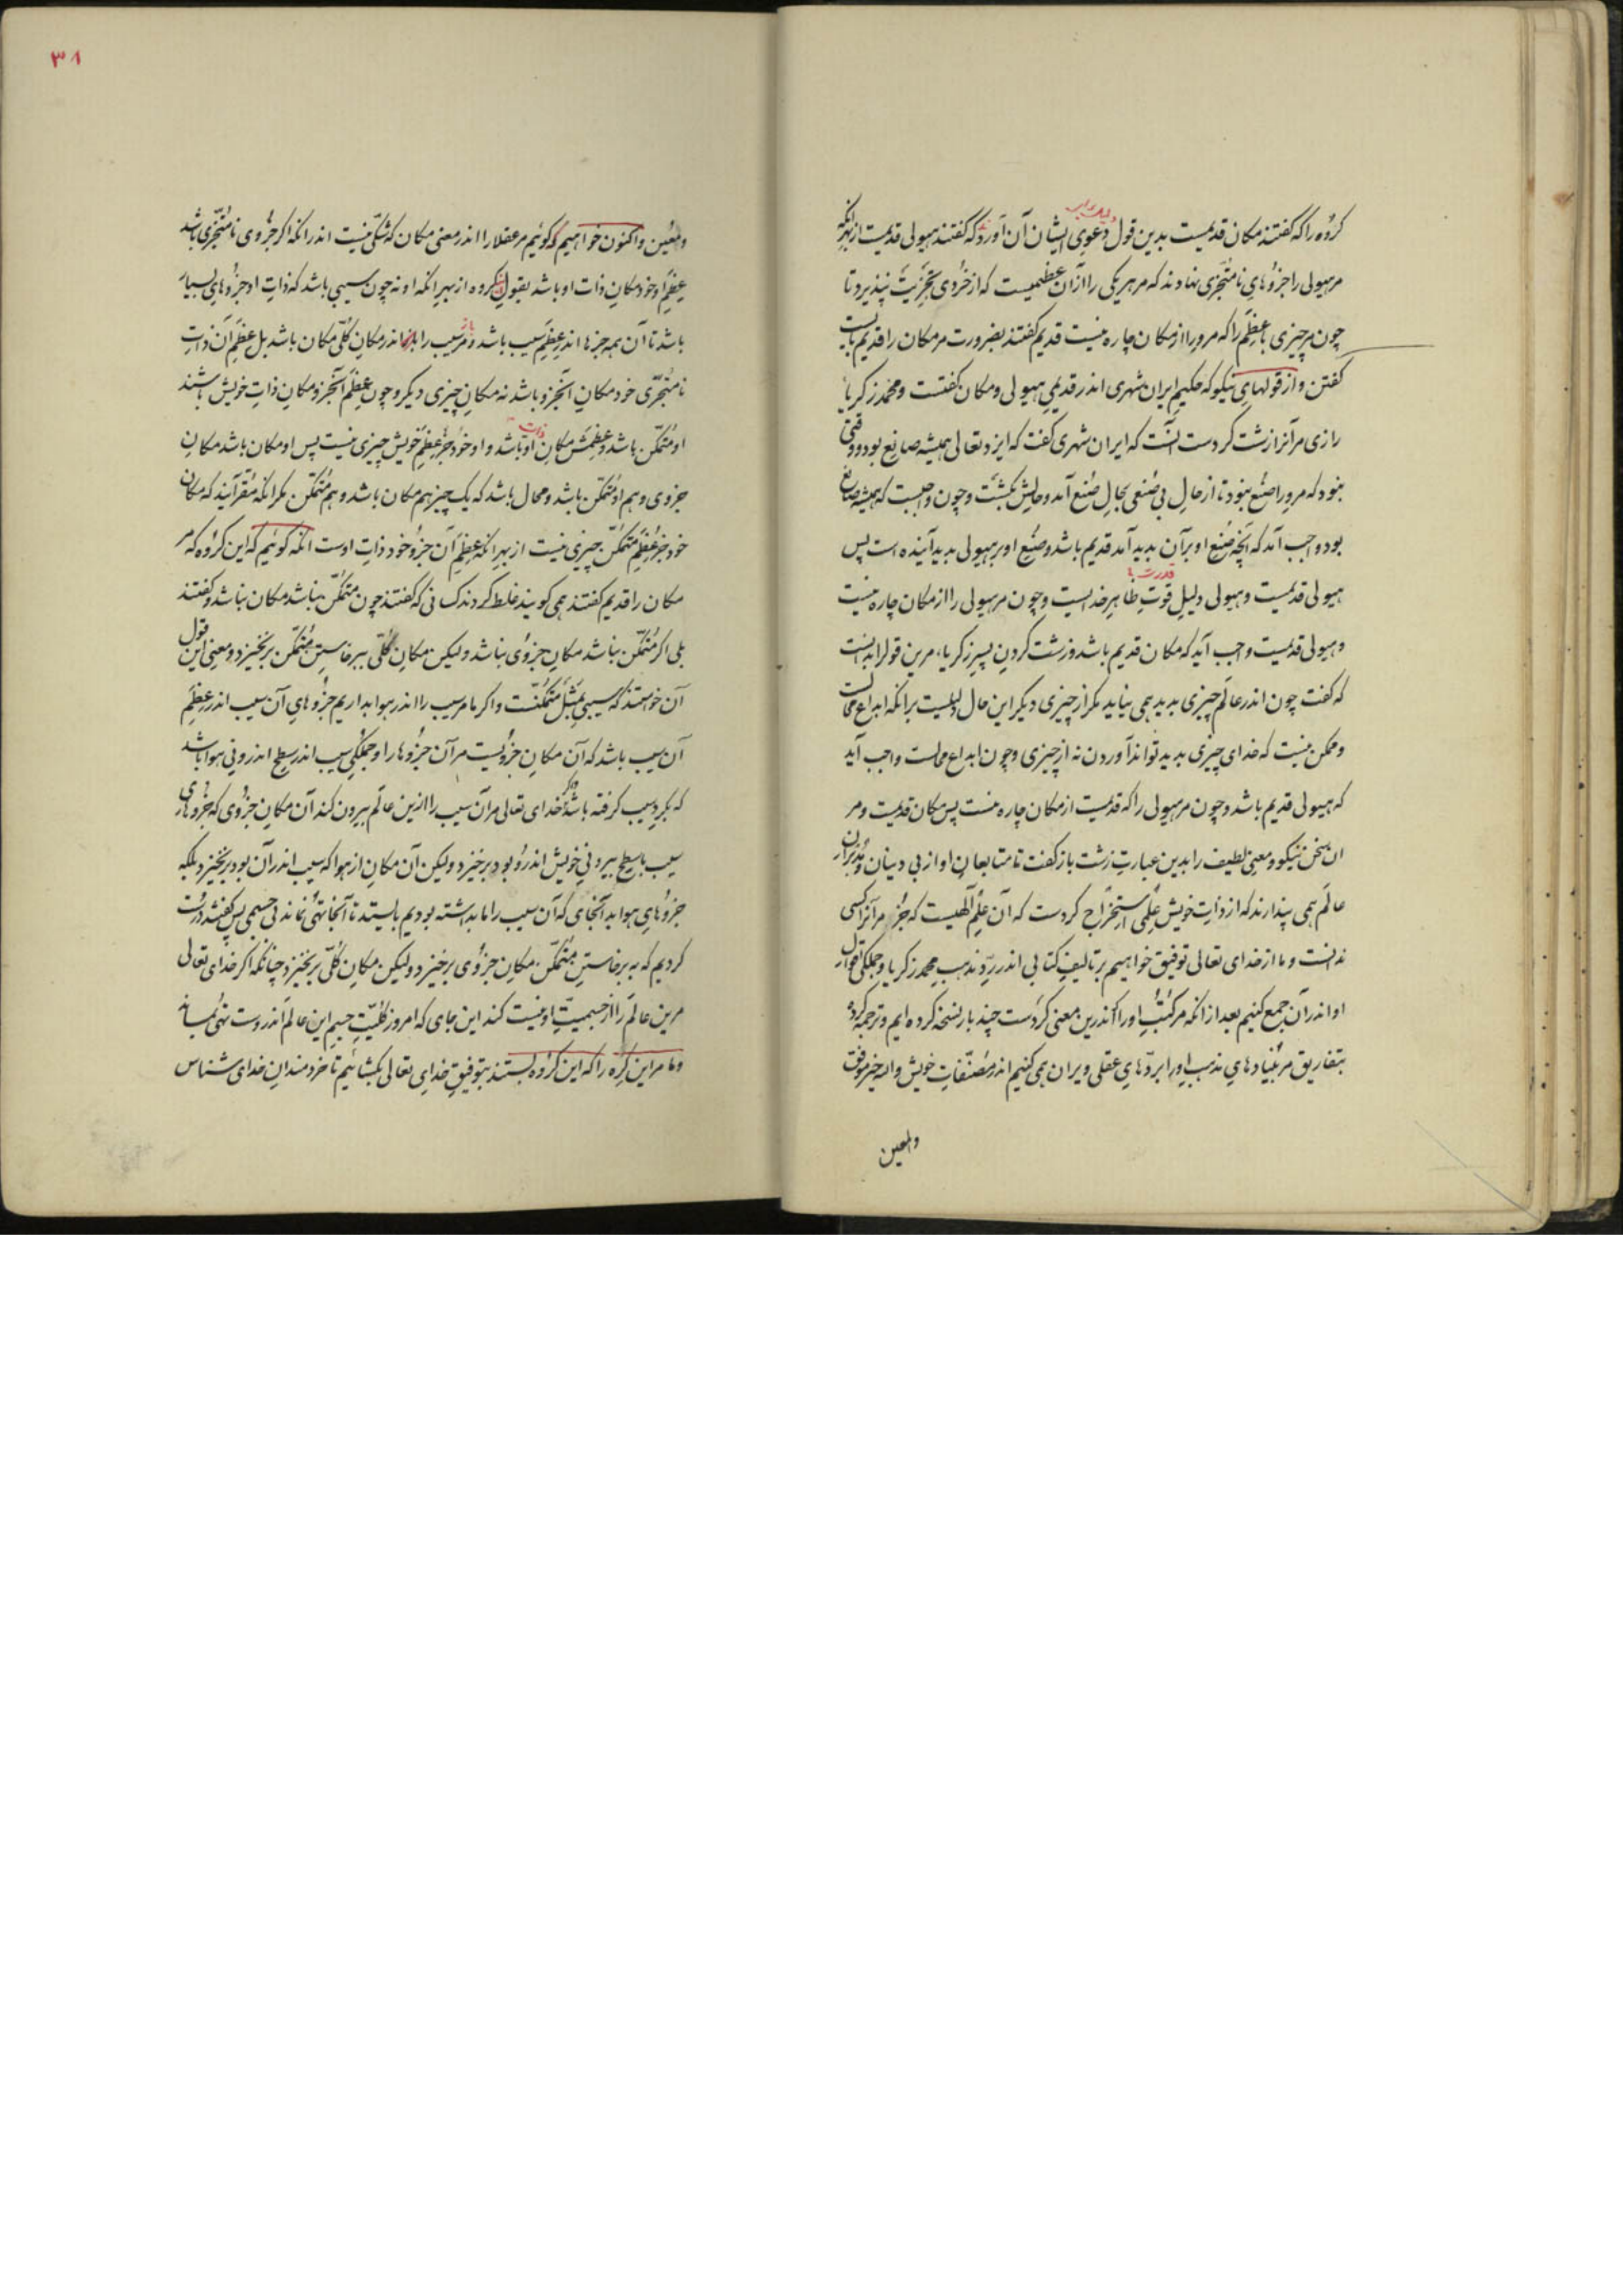 گروه را که گفتند مکان قدیمست بدین قول دعوی ایشان آن آورد که گفتند هیولی قدیمست از بهر آنکه
مر هیولی را جزوهای نامتجزی نهادند که مر هر یکی را از آن عظمیست که از خردی تجزیت نپذیرد و تا
چون مر چیزی باعظم را که مر ورا از مکان چاره نیست قدیم گفتند بضرورت مر مکان را قدیم بایست
گفتن و از قولهای نیکو که حکیم ایران شهری اندر قدیمی هیولی و مکان گفتست و محمد زکریا
رازی مر آنرا زشت کردست آنست که ایران شهری گفت که ایزد تعالی همیشه صانع بود و وقتی
نبود که مر ورا صنع نبود تا از حال بی صنعی بحال صنع آمد و حالش بگشت و چون واجبست که همیشه صانع
بود واجب آمد که آنچه صنع او بر آن پدید آمد قدیم باشد و صنع او بر هیولی پدید آینده است پس
هیولی قدیمست و هیولی دلیل قوت قدرت ظاهر خدایست و چون مر هیولی را از مکان چاره نیست
و هیولی قدیمست واجب آید که مکان قدیم باشد و زشت کردن پسر زکریا مرین قول را بدانست
که گفت چون اندر عالم چیزی پدید همی نیاید مگر از چیزی دیگر این حال دلیلست بر آنکه ابداع محالست
و ممکن نیست که خدای چیزی پدید تواند آوردن نه از چیزی و چون ابداع محالست واجب آید
که هیولی قدیم باشد و چون مر هیولی را که قدیمست از مکان چاره نیست پس مکان قدیمت و مر
ان سخن نیکو و معنی لطیف را بدین عبارت زشت باز گفت تا متابعان او از بی دینان و مدبران
عالم همی پندارند که از ذات خویش علمی استخراج کردست که آن علم الهیست که جز او مر آنرا کسی
ندانست و ما از خدای تعالی توفیق خواهیم بر تالیف کتابی اندر رد مذهب محمد زکریا و جملگی اقوال
او اندر آن جمع کنیم بعد از آنکه مر کتب او را که اندرین معنی کردست چند بار نسخه کرده ایم و ترجمه کرده
بتفاریق مر بنیادهای مذهب او را بردهای عقلی ویران همی کنیم اندر مصنفات خویش والله خیر موفق
والمعین
۳۸
ومعین و اکنون خواهیم که گوئیم مر عقلا را اندر معنی مکان که شکی نیست اندر آنکه اگر جزوی نامتجزی باشد
عظم او خود مکان ذات او باشد بقول ان گروه از بهر آنکه او نه چون سیبی باشد که ذات او جزوهای بسیار
باشد تا آن همه جزها اندر عظم سیب باشد و باز مر سیب را اندر مکان کلی مکان باشد بل عظم آن ذات
نامتجزی خود مکان آنجزو باشد نه مکان چیزی دیگر و چون عظم آنجزو مکان ذات خویش باشند
او متمکن باشد و عظمش مکان ذات او باشد و او خود جز عظم خویش چیزی نیست پس او مکان باشد مکان
جزوی و هم او متمکن باشد و محال باشد که یک چیز هم مکان باشد و هم متمکن مگر آنکه مقر آیند که مکان
خود جز عظم متمکن چیزی نیست از بهر آنکه عظم آن جزو خود ذات اوست آنگه گوئیم که این گروه که مر
مکان را قدیم گفتند همی گویند غلط کردند کسانی که گفتند چون متمکن نباشد مکان نباشد و گفتند
بلی اگر متمکن نباشد مکان جزوی نباشد ولیکن مکان کلی ببرخاستن متمکن برنخیزد و معنی این قول
آن خواستند که سیبی بمثل متمکنست و اگر ما مر سیب را اندر هوا بداریم جزوهای آن سیب اندر عظم
آن سیب باشد که آن مکان جزویست مر آن جزوها را و جملگی سیب اندر سطح اندرونی هوا باشد
که بگرد سیب گرفته باشد و گر خدای تعالی مر آن سیب را ازین عالم بیرون کند آن مکان جزوی که جزوهای
سیب با سطح بیرونی خویش اندرو بود برخیزد ولیکن آن مکان از هوا که سیب اندر آن بود برنخیزد بلکه
جزوهای هوا بدانجای که آن سیب را ما بداشته بودیم بایستد تا آنجا تهی نماند بی جسمی پس گفتند درست
کردیم که به برخاستن متمکن مکان جزوی برخیزد ولیکن مکان کلی برنخیزد چنانکه اگر خدای تعالی
مرین عالم را از جسمیت او نیست کند این جای که امروز کلیت جسم این عالم اندروست تهی بماند
و ما مر این گره را که این گروه بستند بتوفیق خدای تعالی بگشائیم تا خردمندان خدای شناس